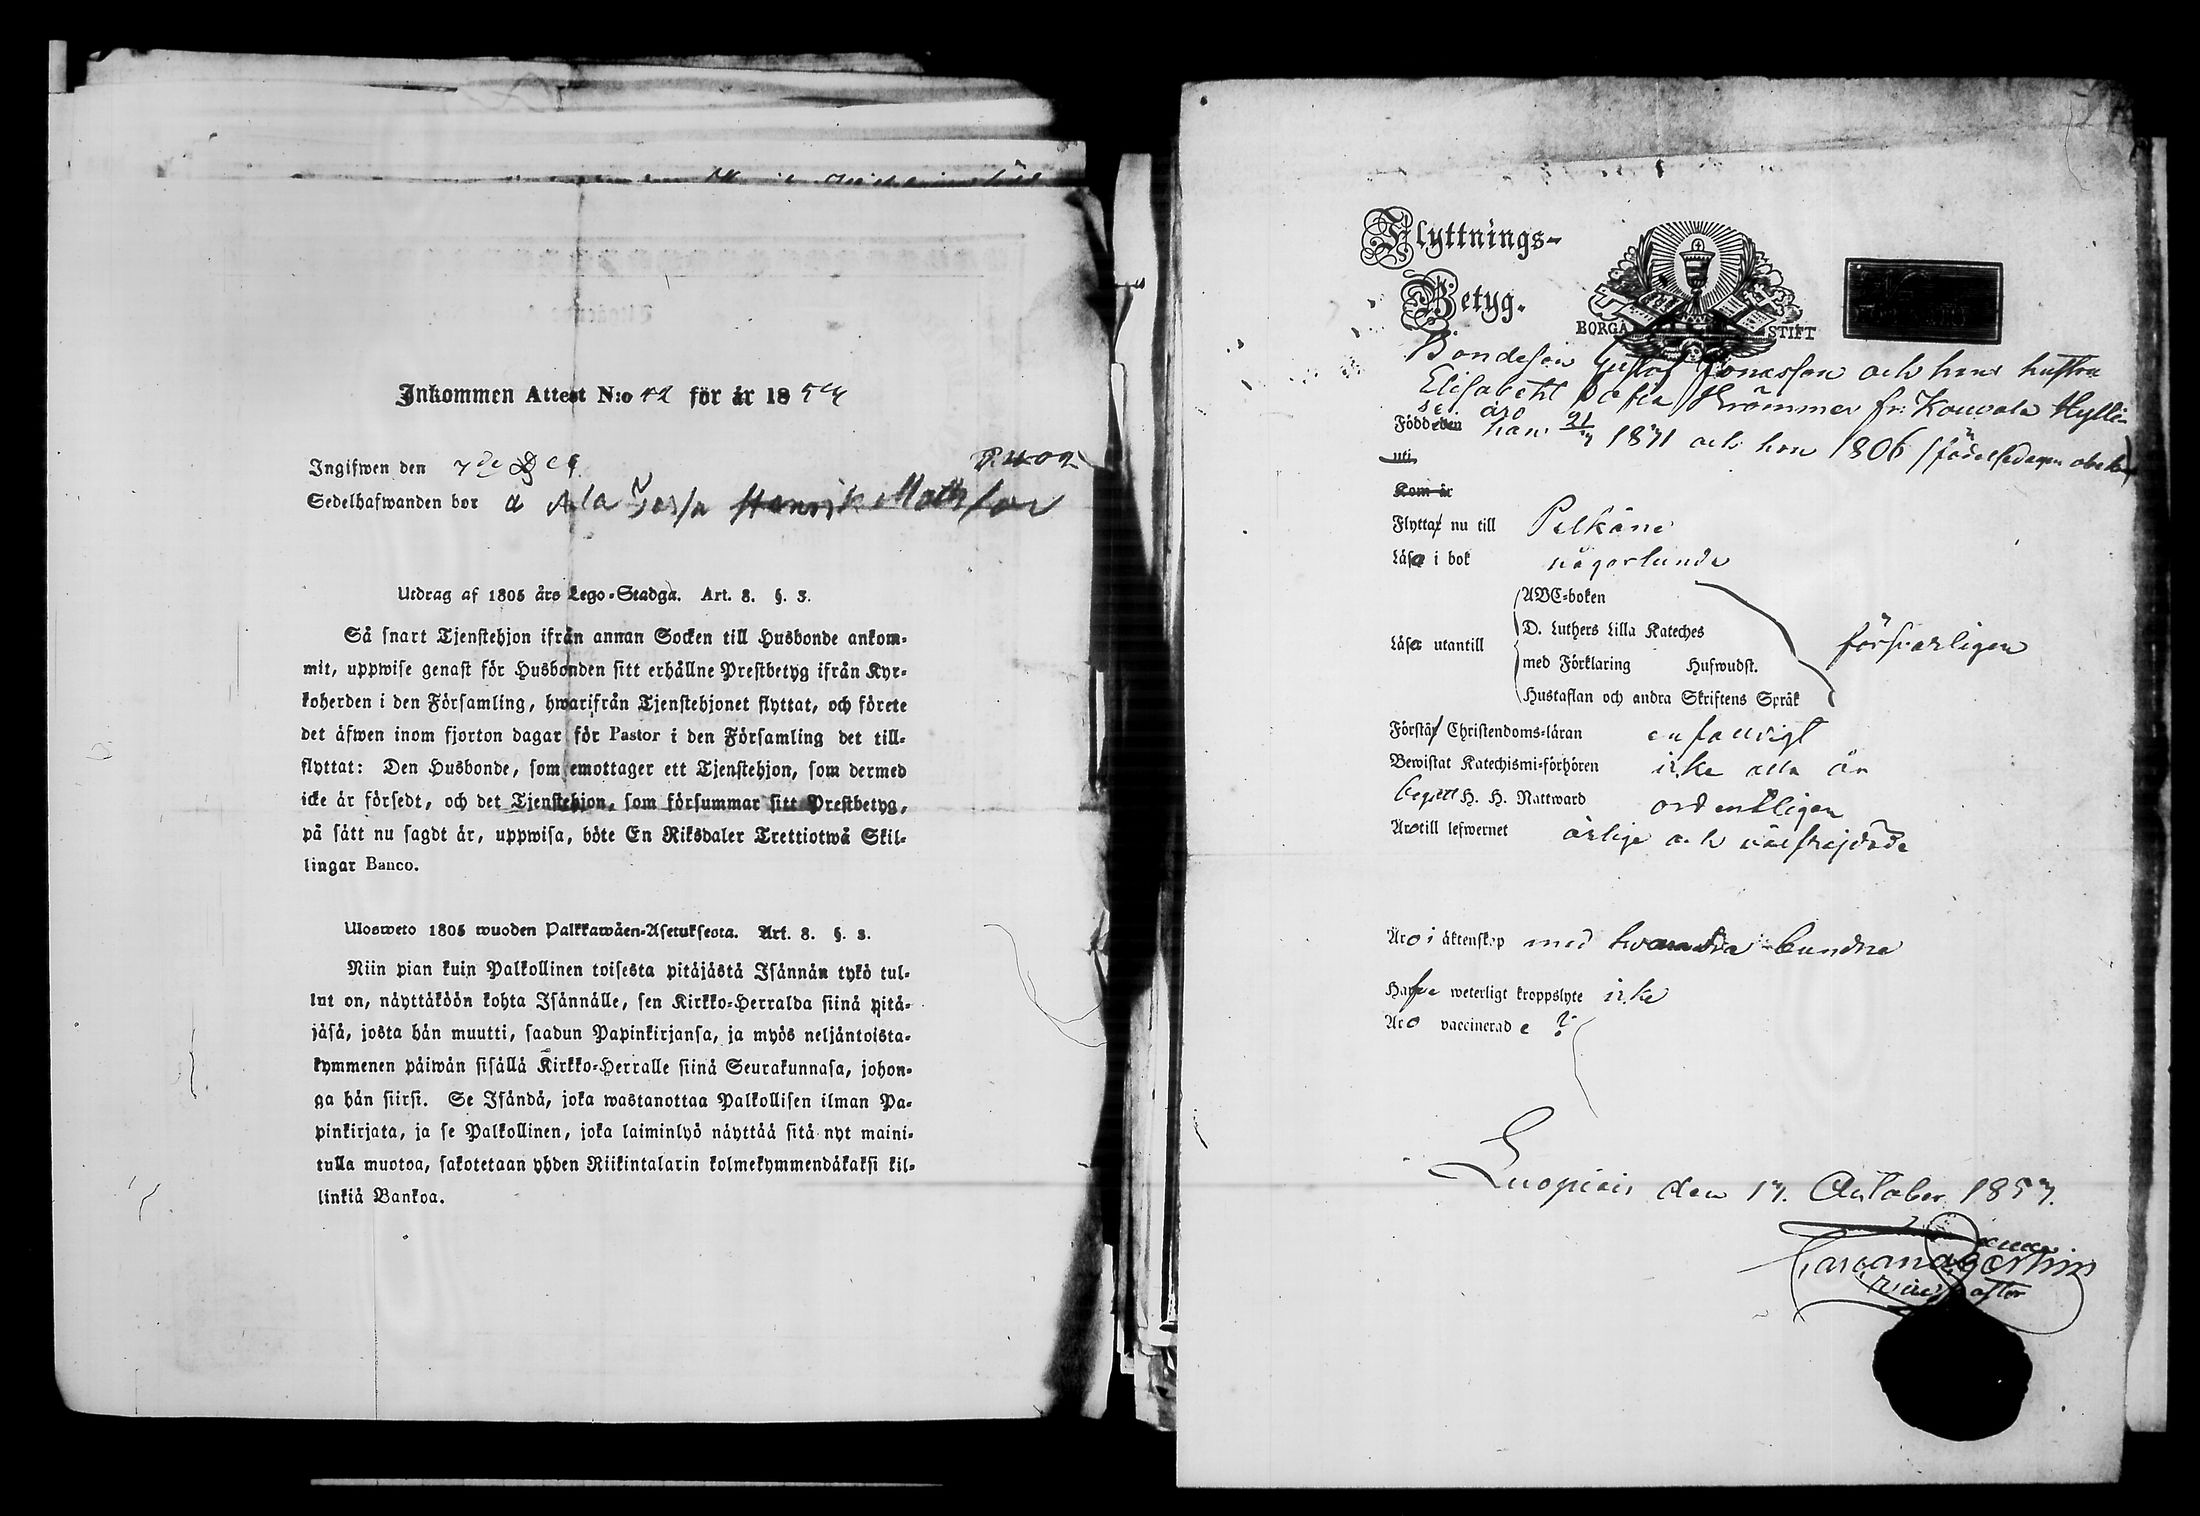 Inkommen Attest N:o 42 för år 1857
Ingifwen den 7de Dec
Sedelhafwanden bor a Ala Henrik Matsson
Utdrag af 1805 års Lego-Stadga. Art. 8. §. 3.
Så snart Tjenstehjon ifrån annan Socken till Husbonde ankom-
mit, uppwise genast för Husbonden sitt erhållne Prestbetyg ifrån Kyr-
koherden i den Församling, hwarifrån Tjenstehjonet flyttat, och förete
det äfwen inom fjorton dagar för Pastor i den Församling det till-
flyttat: Den Husbonde, som emottager ett Tjenstehjon, som dermed
icke är försedt, och det Tjenstehjon, som försummar sitt Prestbetyg,
på sätt nu sagdt är, uppwisa, böte En Riksdaler Trettiotwå Skil-
lingar Banco.
Ulosweto 1805 wuoden Palkkawäen-Asetuksesta. Art. 8. §. 3.
Niin pian kuin Palkollinen toisesta pitäjästä Isännän tykö tul-
lut on, näyttäköön kohta Isännälle, sen Kirkko-Herralda siinä pitä-
jäsä, josta hän muutti, saadun Papinkirjansa, ja myös neljäntoista-
kymmenen päiwän sisällä Kirkko-Herralle siinä Seurakunnasa, johon-
ga hän siirsi. Se Isändä, joka wastanottaa Palkollisen ilman Pa-
pinkirjata, ja se Palkollinen, joka laiminlyö näyttää sitä nyt maini-
tulla muotoa, sakotetaan yhden Riikintalarin kolmekymmendäkaksi kil-
linkiä Bankoa.
Flyttnings-
Betyg.
BORGÅ STIFT
Bondeson Gustaf Jonasson och hans hustru
Elisabeth Krömmer fr: Kouvala
Född den han och hon 1806
uti
Kom år
Flytta nu till Pelkäne
Läsa i bok någorlunda
ABC-boken
D. Luthers Lilla Kateches
Läsa utantill försvarligen
med Förklaring Hufwudst.
Hustaflan och andra Skriftens Språk
Förstå Christendoms-läran enfaldigt
Bewistat Katechismi-förhören icke alla år
Begått H. H. Nattward ordentligen
Äro till lefwernet ärlige och välfrejdade
Äro i äktenskap med hvarandra bundne
Hafva weterligt kroppslyte icke
Äro vaccinerade ?
Luopiois den 17. October 1857.